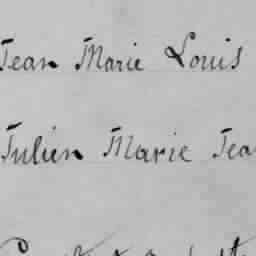 Jean Marie Louis
Julien Marie Jea